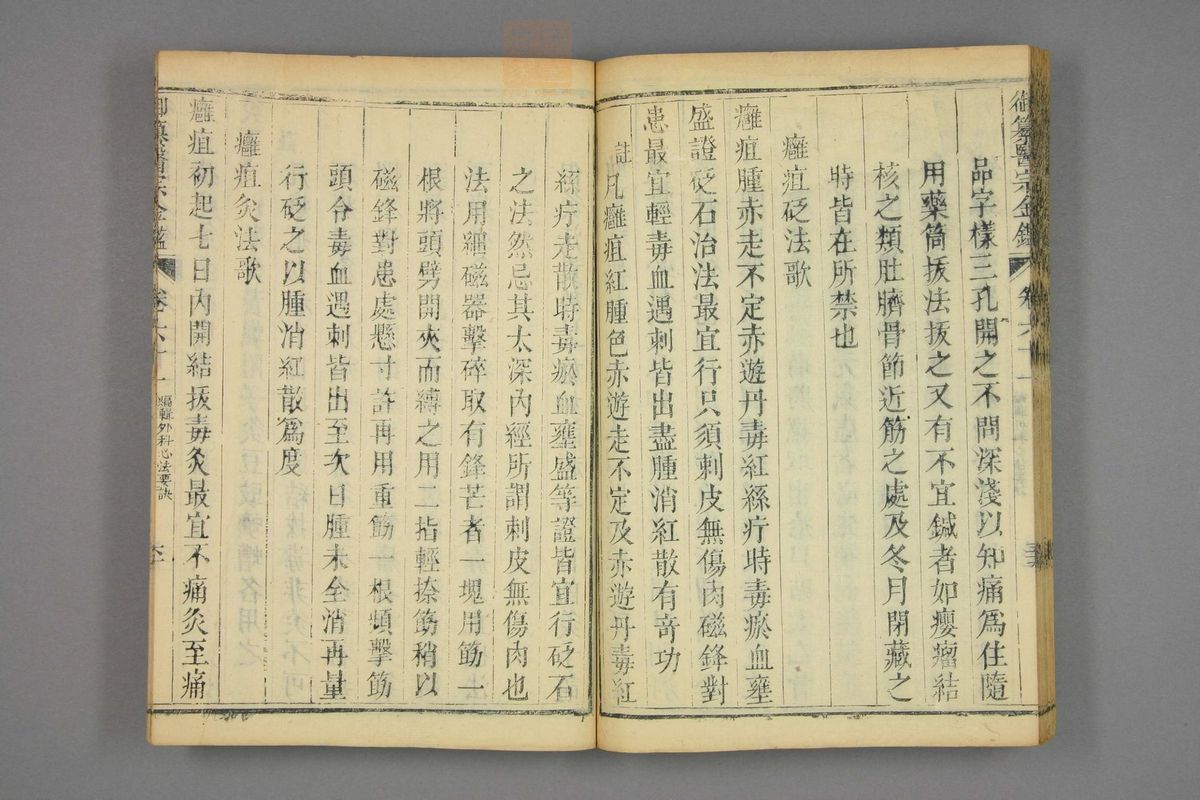 御纂醫宗金鑑 卷六十一
品字樣三孔開之不問深淺以知痛爲住隨
用藥筒拔法拔之又有不宜鍼者如癭瘤結
核之類肚臍骨節近筋之處及冬月閉藏之
時皆在所禁也
癰疽砭法歌
癰疽腫赤走不定赤遊丹毒紅絲疔時毒瘀血壅
盛證砭石治法最宜行只須刺皮無傷肉磁鋒對
患最宜輕毒血遇刺皆出盡腫消紅散有竒功
註凡癰疽紅腫色赤遊走不定及赤遊丹毒紅
絲疔走散時毒瘀血壅盛等證皆宜行砭石
之法然忌其太深內經所謂刺皮無傷肉也
法用細磁器擊碎取有鋒芒者一塊用筯一
根將頭劈開夾而縛之用二指輕捺筯稍以
磁鋒對患處懸寸許再用重筯一根頻擊筯
頭令毒血遇刺皆出至次日腫未全消再量
行砭之以腫消紅散爲度
癰疽灸法歌
癰疽初起七日內開結拔毒灸最宜不痛灸至痛
御纂醫宗金鑑 卷六十一 編輯外科心法要訣